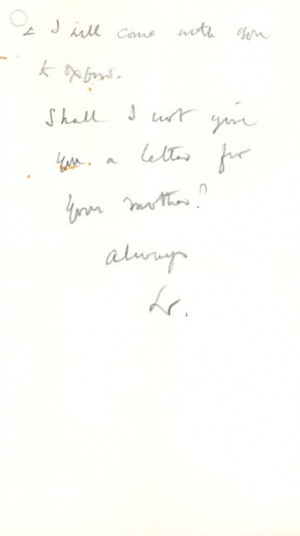 & I will come with you
to Oxford.
Shall I not give
you a letter for
your mother?
Always